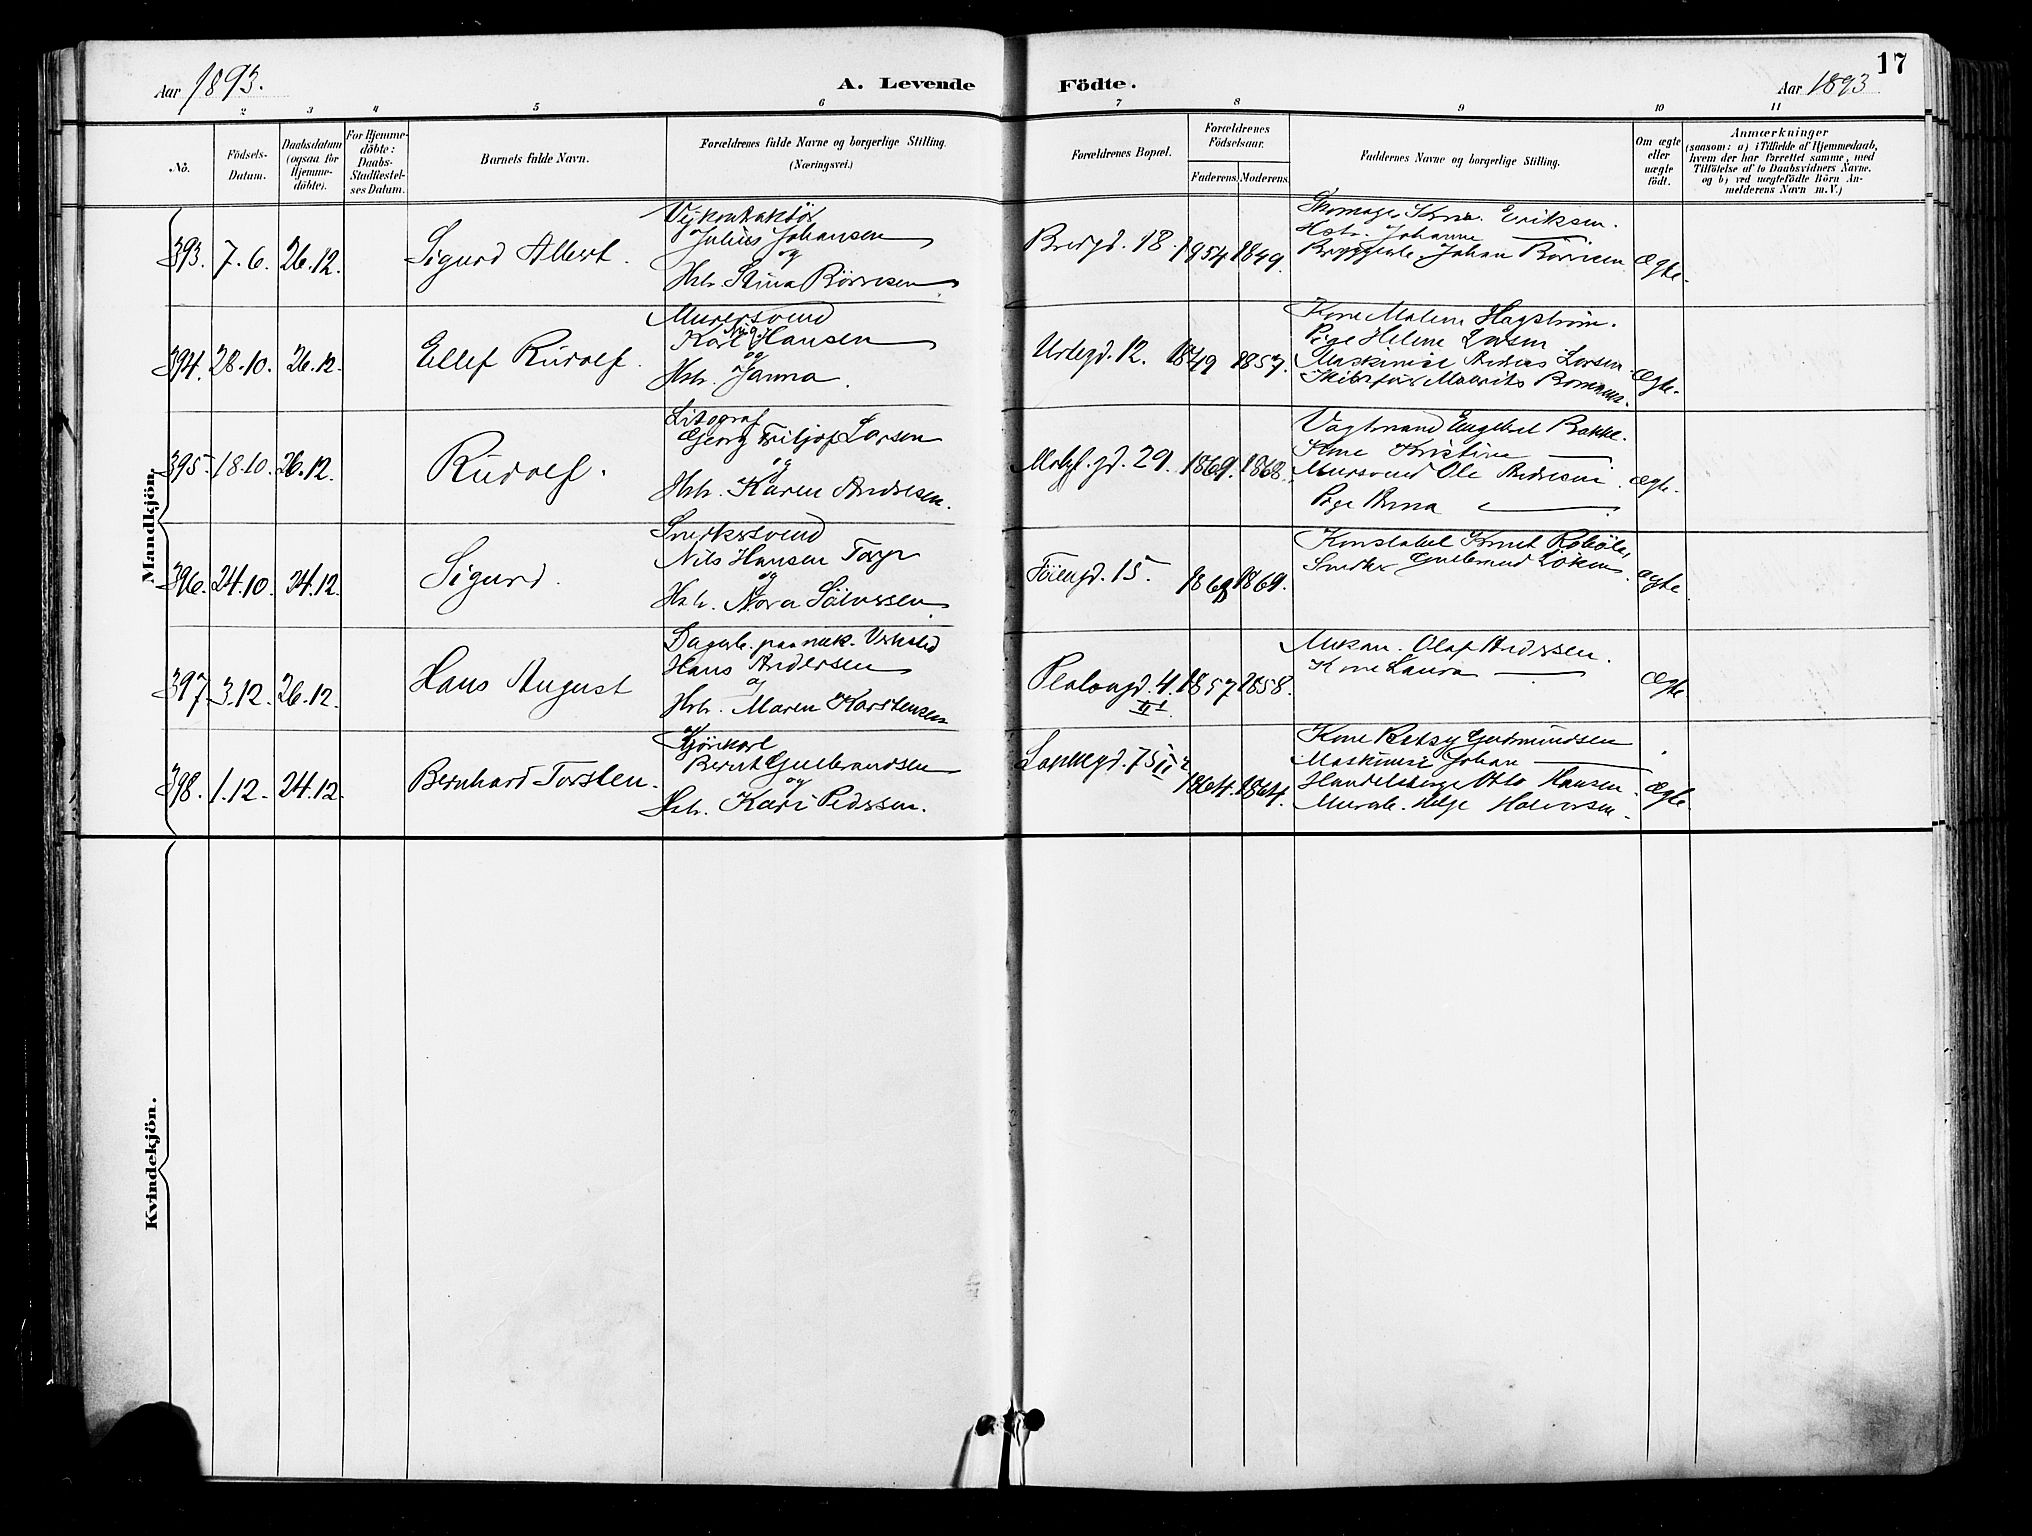 17
Aar 1893.
A. Levende Födte.
Aar 1893
2 3 4 5 6 7 8 9 10 11
No.
Födsels-
Datum.
Daabsdatum
(ogsaa for
Hjemme-
döbte).
For Hjemme-
döbte:
Daabs-
Stadfæstel-
ses Datum.
Barnets fulde Navn.
Forældrenes fulde Navne og borgerlige Stilling.
(Næringsvei.)
Forældrenes Bopæl.
Forældrenes
Födselsaar.
Faderens. Moderens.
Faddernes Navne og borgerlige Stilling.
Om ægte
eller
uægte
födt.
Anmærkninger
(saasom: a) i Tilfælde af Hjemmedaab,
hvem der har forrettet samme, med
Tilföielse af to Daabsvidners Navne.
og b) ved uægtefödte Börn An-
melderens Navn m. V.)
Mandkjön.
393. 7.6. 26.12. Sigurd Albert.
Julius Johansen
og
Hstr. Stina Börresen
Bredgd. 18. 1854 1849.
Eriksen.
Hstr. Johanne
Johan Börresen
Ægte.
394. 28.10. 26.12. Ellef Rudolf.
Murersvend
Karl Hansen
og
Hstr. Janna.
Urtegd. 12. 1849 1857.
Kone Malene Hagström.
Pige Helene Larsen
Maskinist Andreas Larsen
Ægte.
395. 18.10. 26.12. Rudolf.
Litograf
Georg Fritjof Larsen
og
Hstr. Karen Andresen.
29. 1869. 1868.
Vagtmand Engebret Bakke.
Kone Kristine
Mursvend Ole Andresen.
Pige Anna
Ægte.
396. 24.10. 24.12. Sigurd.
Snedkersvend
Nils Hansen
og
Hstr. Nora
Töiengd. 15. 1868 1869.
Konstabel Knut
Snedker Gulbrand Löken.
Ægte.
397. 3.12. 26.12. Hans August
Hans Andersen
og
Hstr. Maren Karstensen
Platougd. 4. III 1857 1858.
Olaf Anderssen.
Kone Laura
Ægte
398. 1.12. 24.12. Bernhard Torsten.
Kjörekarl
Bernt Gulbrandsen
og
Hstr. Kari Pedersen.
Lakkegd. 75 II 1864. 1864.
Kone Betsy Gudmundsen
Maskinist Johan
Otto Hansen
Murarb. Helge Halvorsen
Ægte
Kvindekjön.